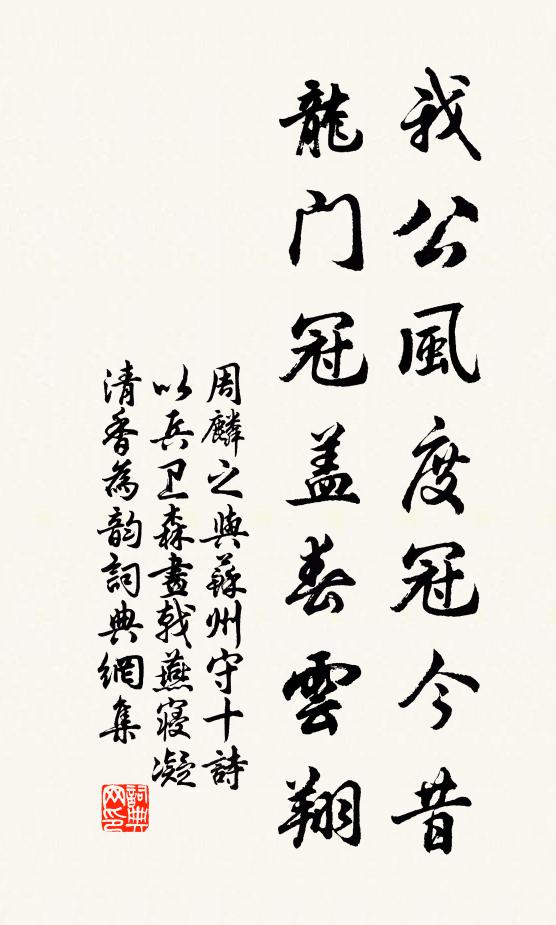 我公風度冠今昔
龍门冠盖春雲翔
周麟之與蘇州守十詩
以兵卫森畫戟燕寢凝
清香為韵詞典網集
詞典
网印